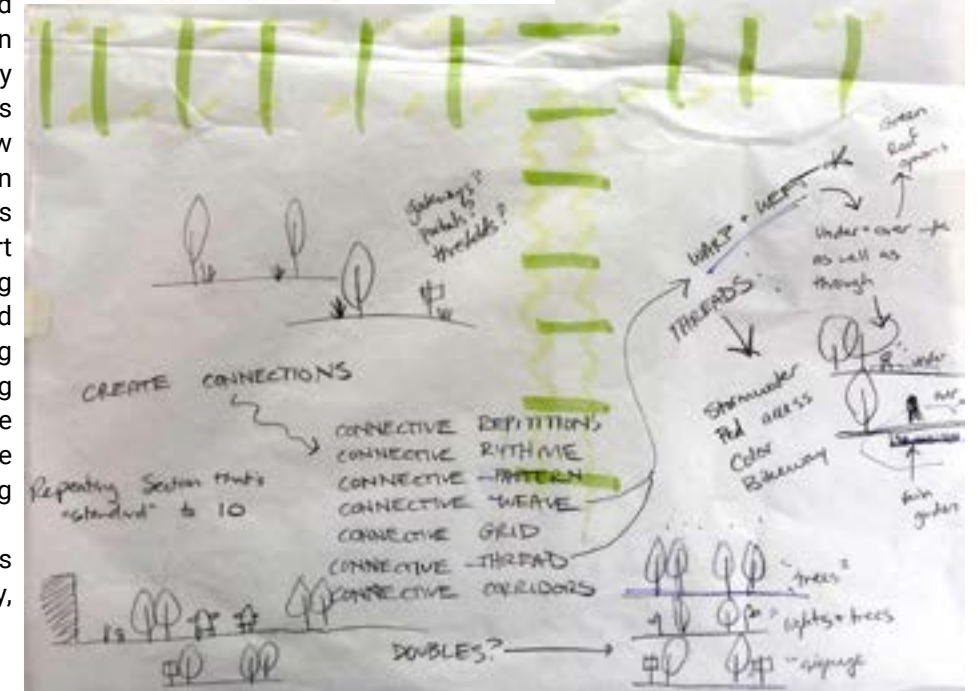 d
n
y
s
w
n
s
rt
g
d
g
g
e
e
g
s
y,
gateways?
portals?
thresholds?
CREATE CONNECTIONS
CONNECTIVE REPITITIONS
CONNECTIVE RYTHME
CONNECTIVE PATTERN
CONNECTIVE WEAVE
CONNECTIVE GRID
CONNECTIVE THREAD
CONNECTIVE CORRIDORS
Repeating Section that's
"standard" to 10
DOUBLES?
WARP + WEFT
THREADS:
Stormwater
Ped access
Color
Bikeway
Green
Roof
options
Under + over
as well as
through
under
over
rain
garden
"trees"
lights + trees
"signage